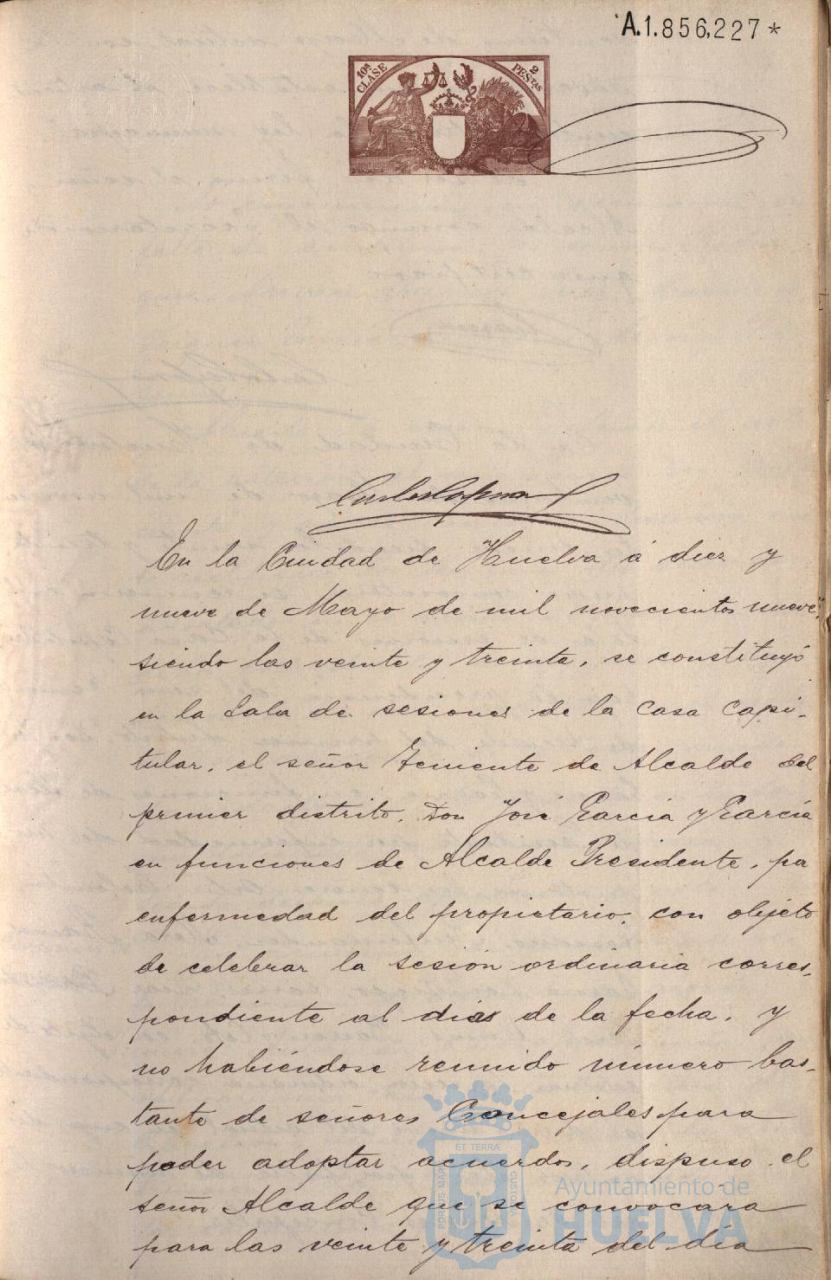 A.1.856,227*
10ª CLASE 2 PESTAS
En la Ciudad de Huelva á diez y
nueve de Mayo de mil novecientos nueve,
siendo las veinte y treinta, se constituyó
en la Sala de sesiones de la Casa Capi-
tular, el señor Teniente de Alcalde del
primer distrito, Don José García y García
en funciones de Alcalde Presidente, por
enfermedad del propietario, con objeto
de celebrar la sesión ordinaria corres-
pondiente al dia de la fecha, y
no habiéndose reunido número bas-
tante de señores Concejales para
poder adoptar acuerdos, dispuso el
señor Alcalde que se convocara
para las veinte y treinta del dia
Ayuntamiento de
HUELVA